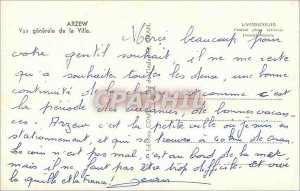 ARZEW
Vue générale de la Ville.
Merci beaucoup pour
votre gentil souhait il ne me reste
qu'a souhaiter tous les deux, une bonne
continuité de la comme c'est
la période des examens, de bonnes vacan
ces. Arzew c'est la petite ville où je suis en
stationnement, et qui se trouve à coté de Oran.
Le coin c'est pas mal, c'est au bord de la mer
mais il ne faut pas être trop difficile. Et vive
la quille et la France.